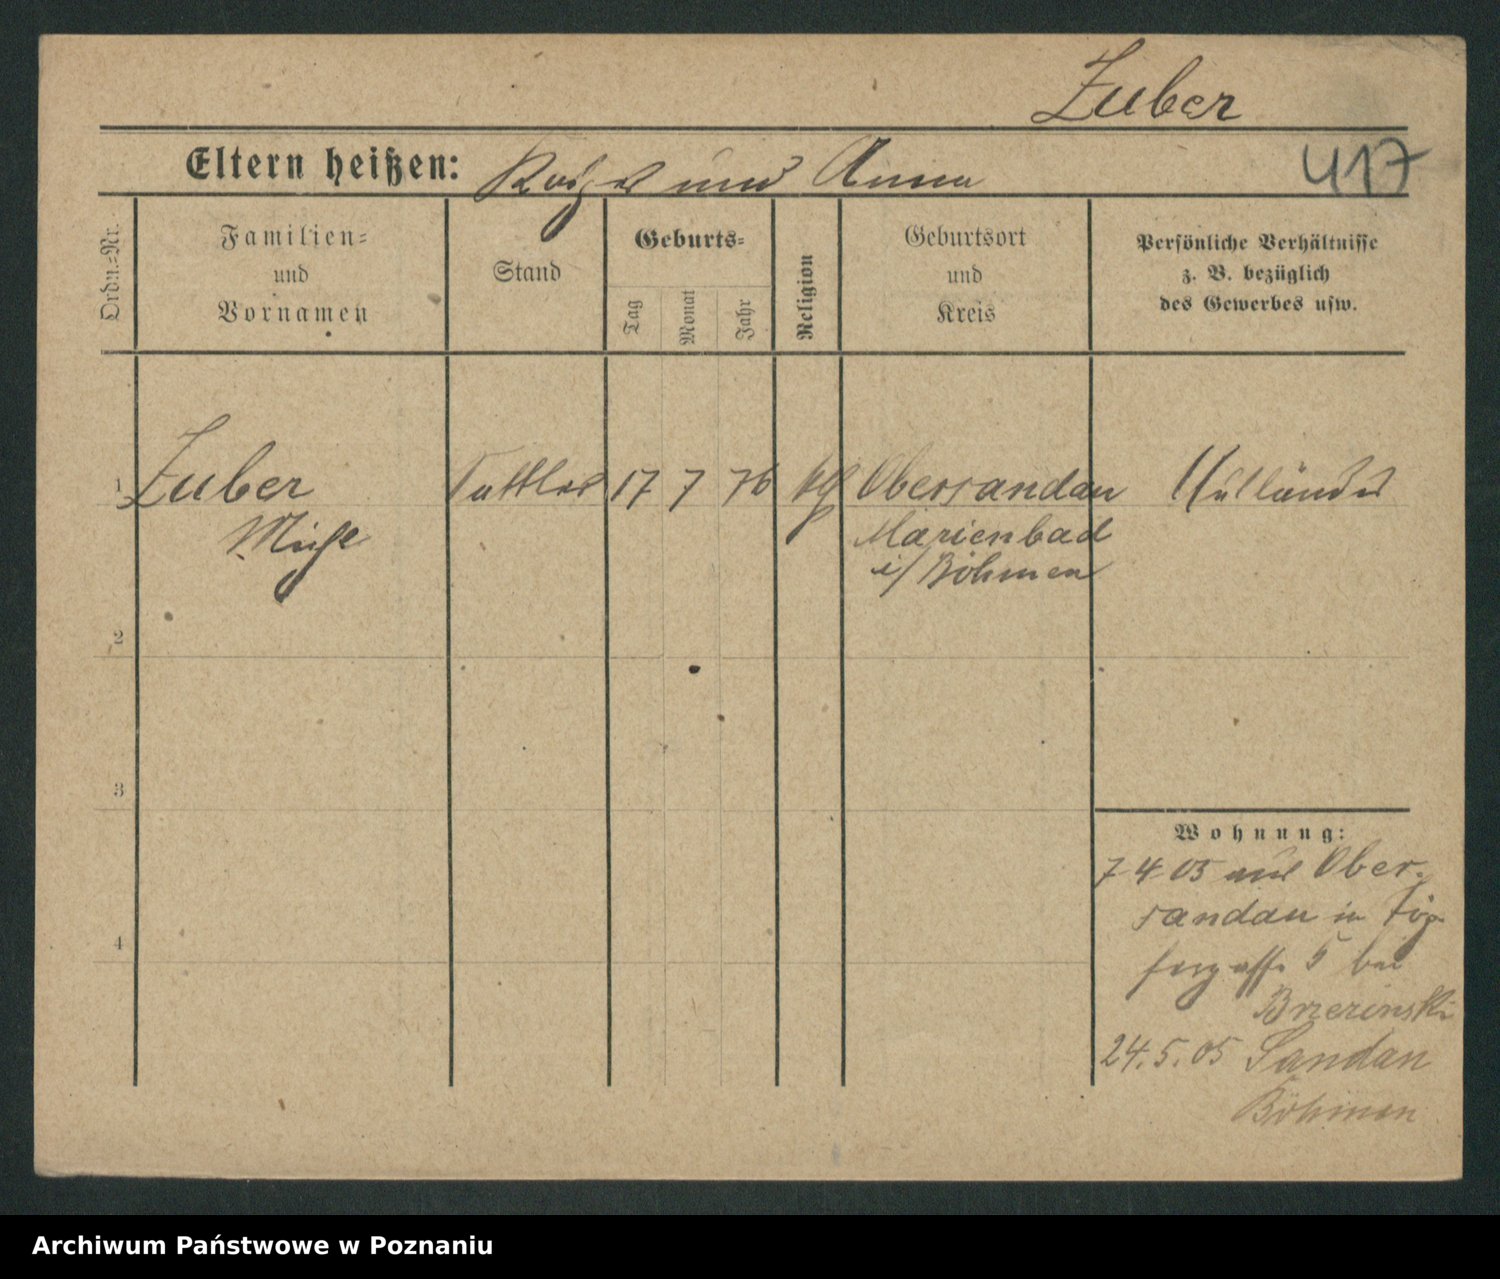 Zuber
Eltern heißen: und Anna
417
Ordn.-Nr.
Familien-
und
Vornamen
Stand
Geburts-
Tag
Monat
Jahr
Religion
Geburtsort
und
Kreis
Persönliche Verhältnisse
z. B. bezüglich
des Gewerbes usw.
1 Zuber Sattler 17 7 76 kth Obersandau Ausländer
Marienbad
i/ Böhmen
2
3
4
Wohnung:
7 4 05 aus Ober-
sandau in Töp
fergasse 5 bei
Brzezinski
24.5.05 Sandau
Böhmen
Archiwum Państwowe w Poznaniu